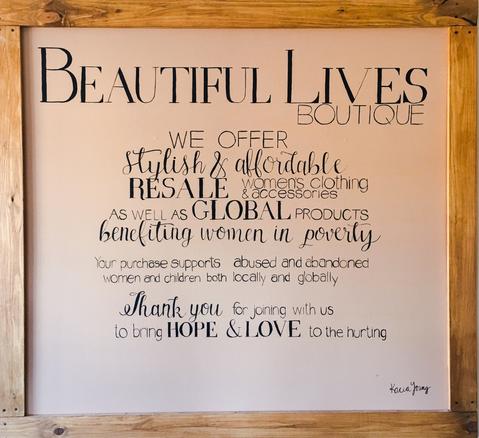 BEAUTIFUL LIVES
BOUTIQUE
WE OFFER
stylish & affordable
RESALE women's clothing & accessories
AS WELL AS GLOBAL PRODUCTS
benefiting women in poverty
Your purchase supports abused and abandoned
women and children both locally and globally
Thank you for joining with us
to bring HOPE & LOVE to the hurting